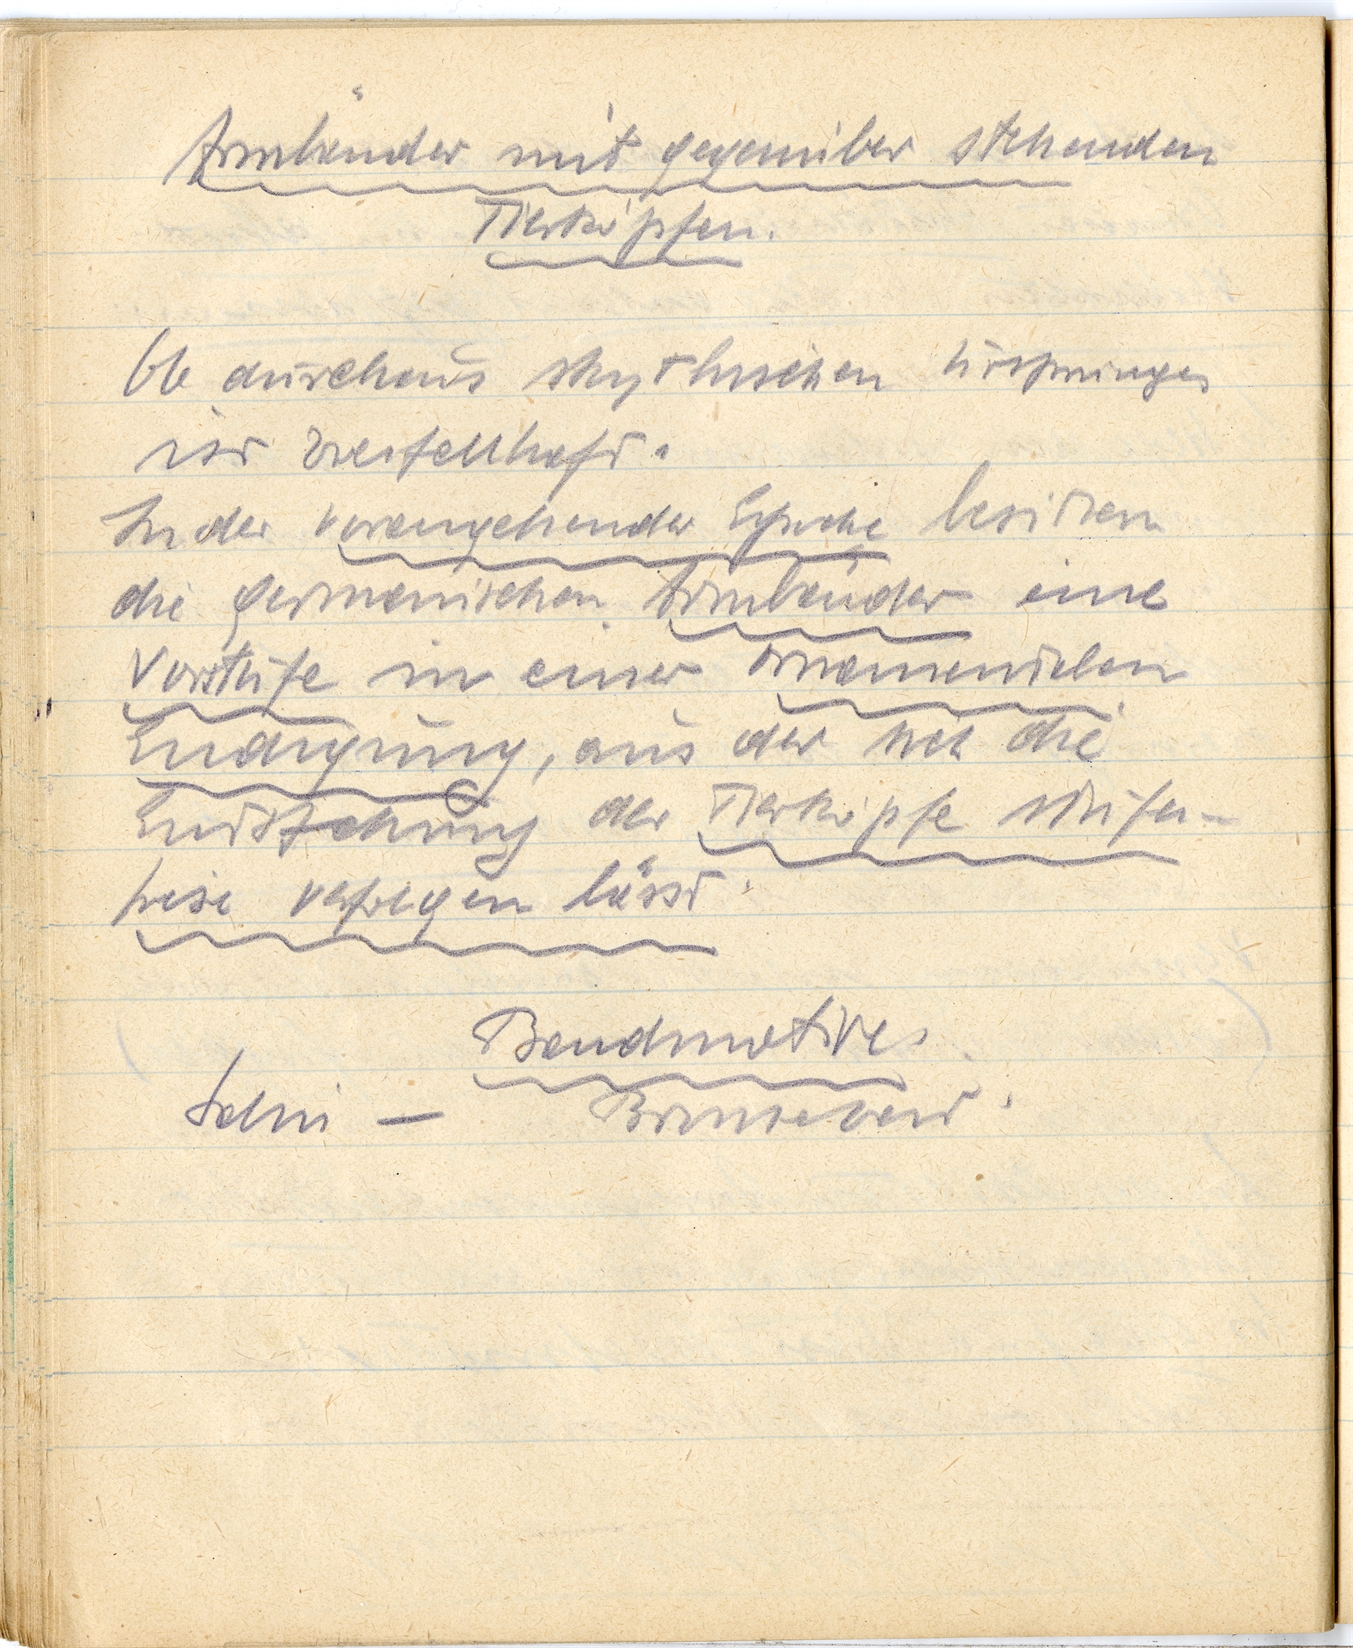 Armbänder mit gegenüber stehenden
Tierköpfen.
Ob durchaus skythischen Ursprunges
ist zweifellhaft.
In der vorangehender Epoche besitzen
die germanischen Armbänder eine
Vorstufe in einer ornamentalen
Endigung, aus der sich die
Entstehung der Tierköpfe stufen-
weise verfolgen lässt.
Bandmotive.
Salin —